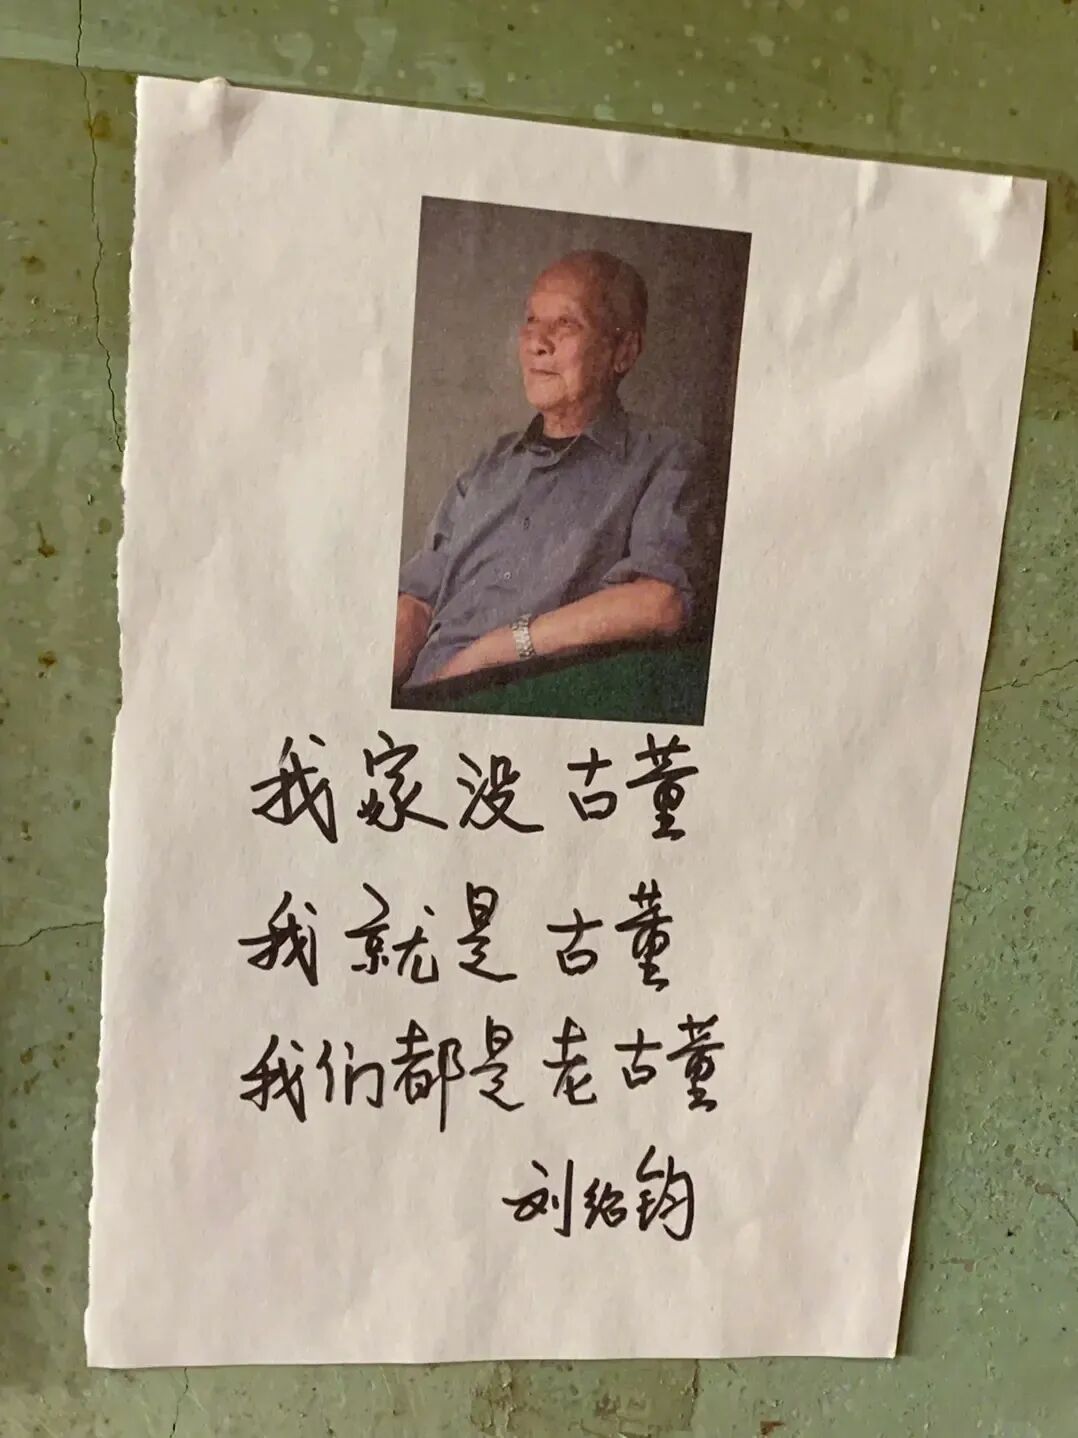 我家没古董
我就是古董
我们都是老古董
刘绍钧